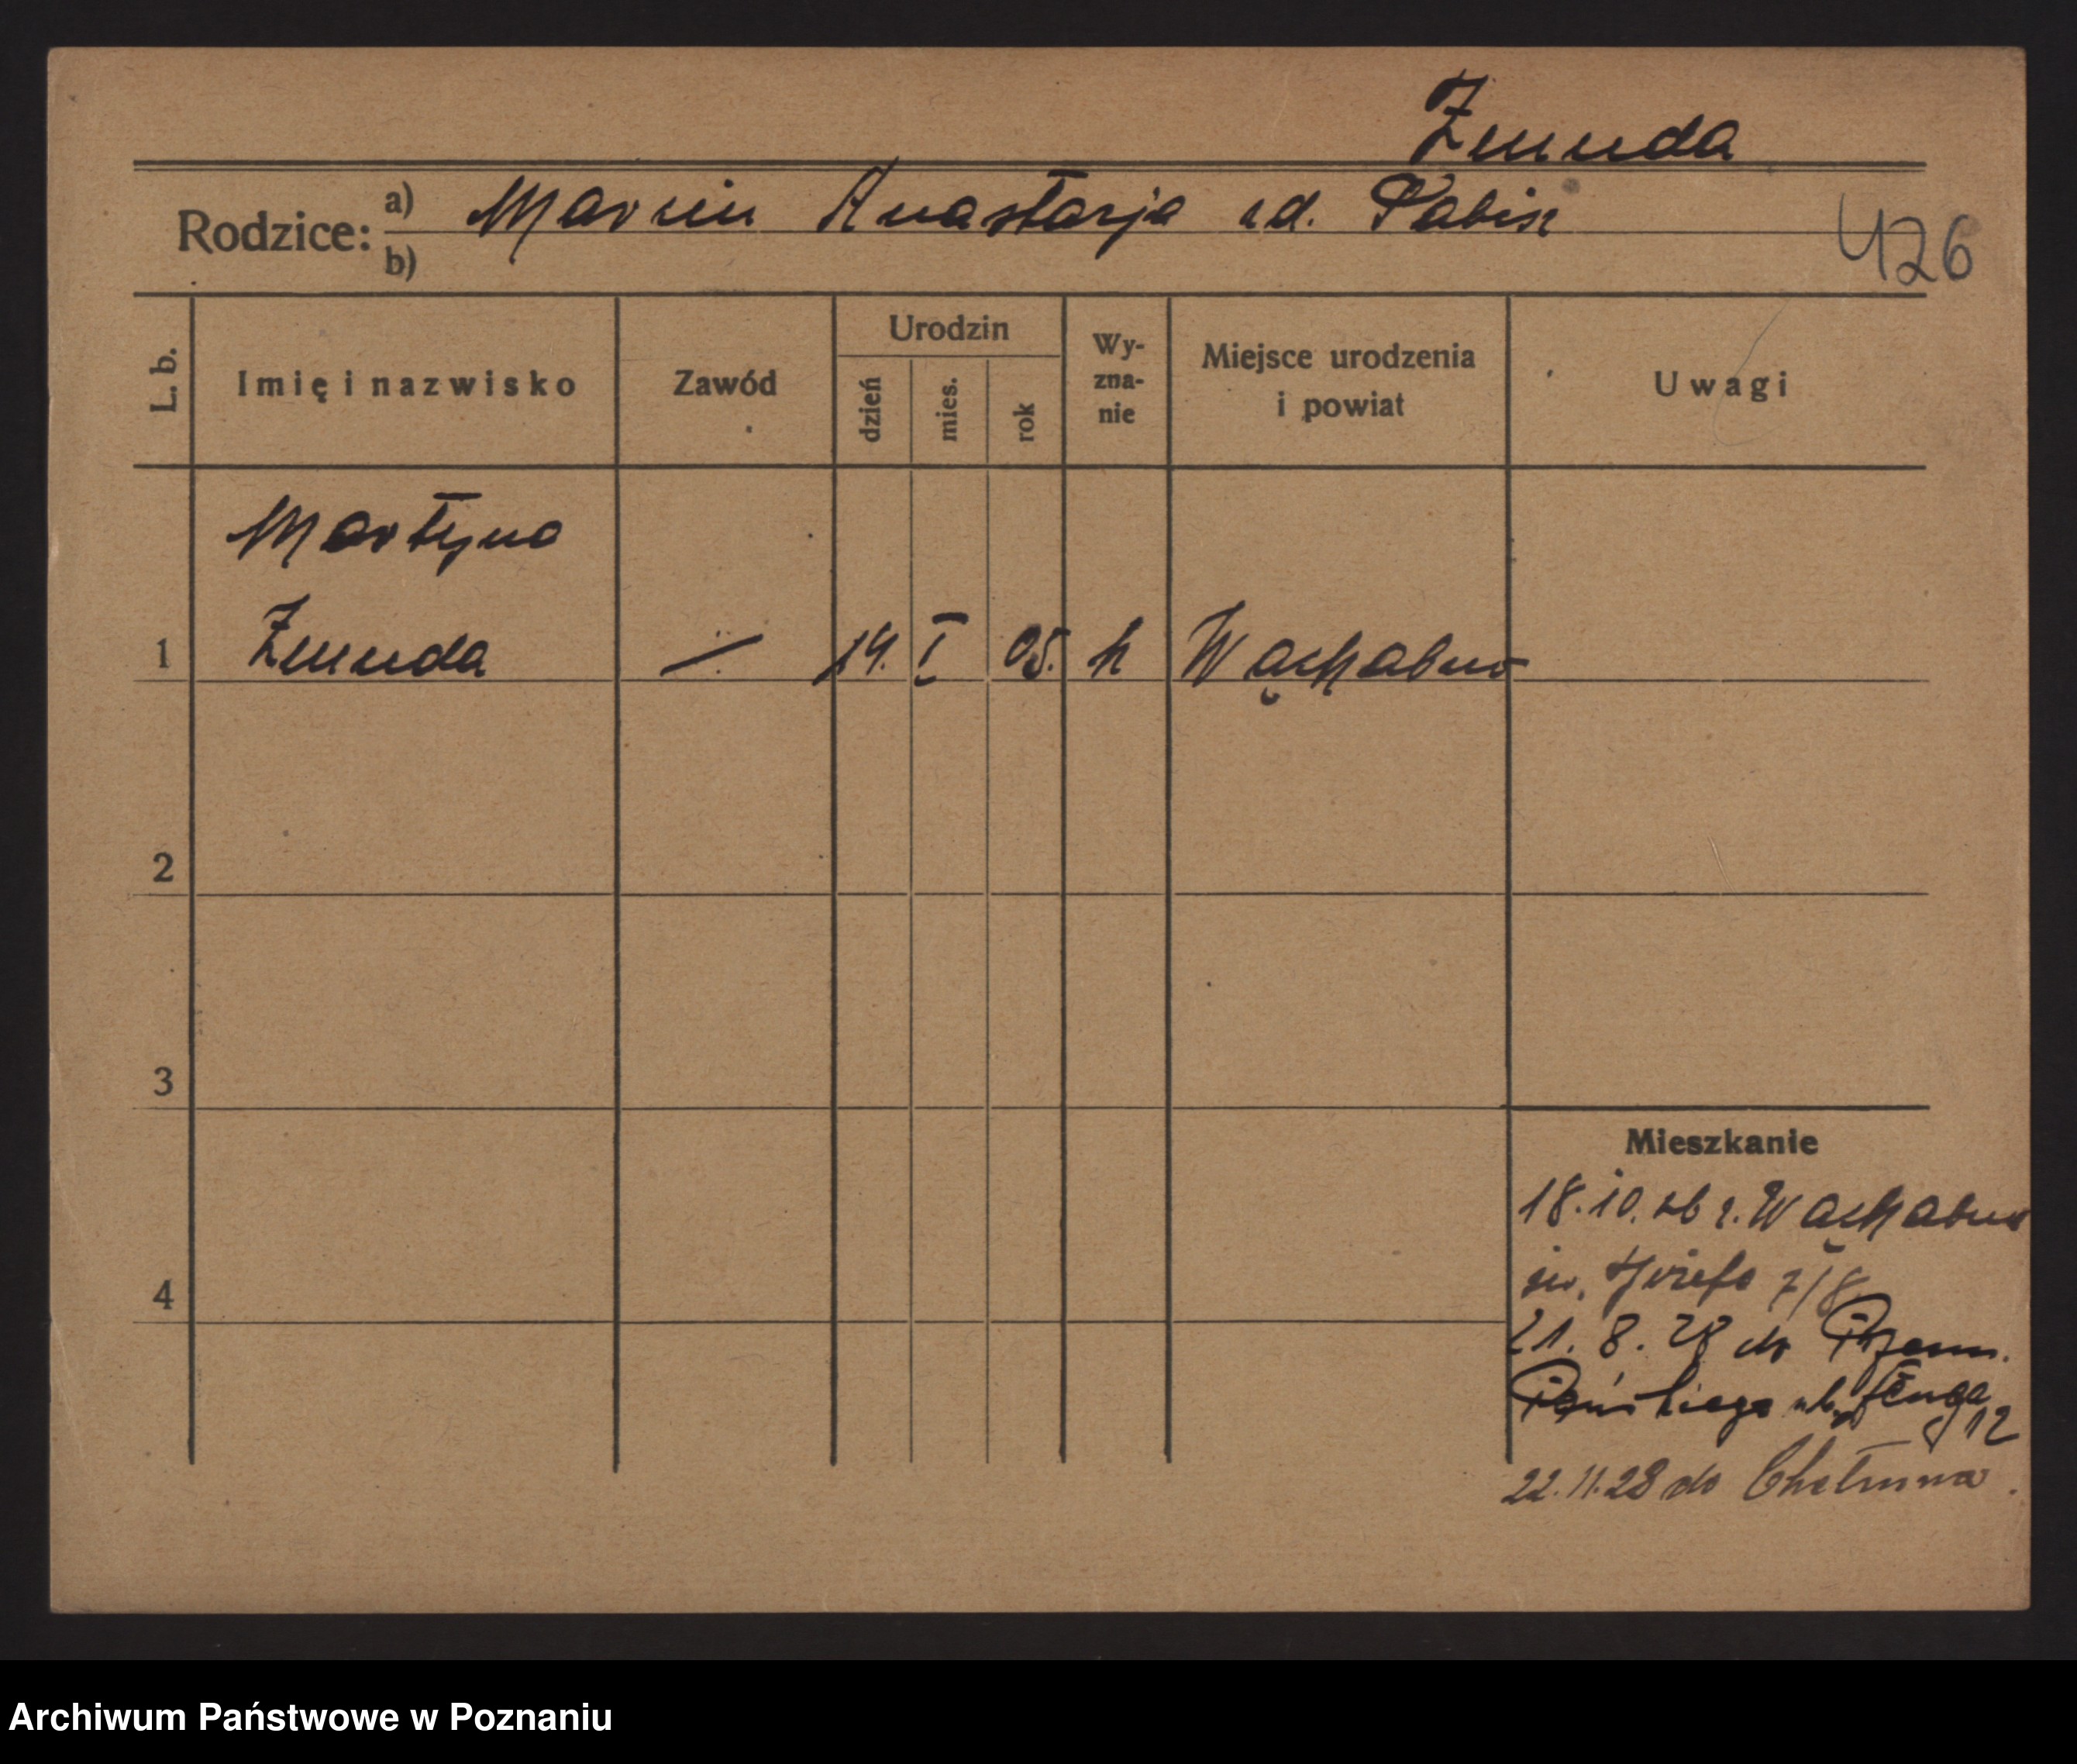 Żmuda
Rodzice: a) Marcin Anastazja zd. Pabisz
b)
426
L. b.
Imię i nazwisko
Zawód
Urodzin
dzień
mies.
rok
Wy-
zna-
nie
Miejsce urodzenia
i powiat
Uwagi
Martyna
1 Żmuda — 14. I 05. k Wąchabno
2
3
4
Mieszkanie
18.10. z Wąchabno
św. Józefa 7/8
21. 8. 28 do
ul. Długa
12
22.11.28 do Chełmna.
Archiwum Państwowe w Poznaniu